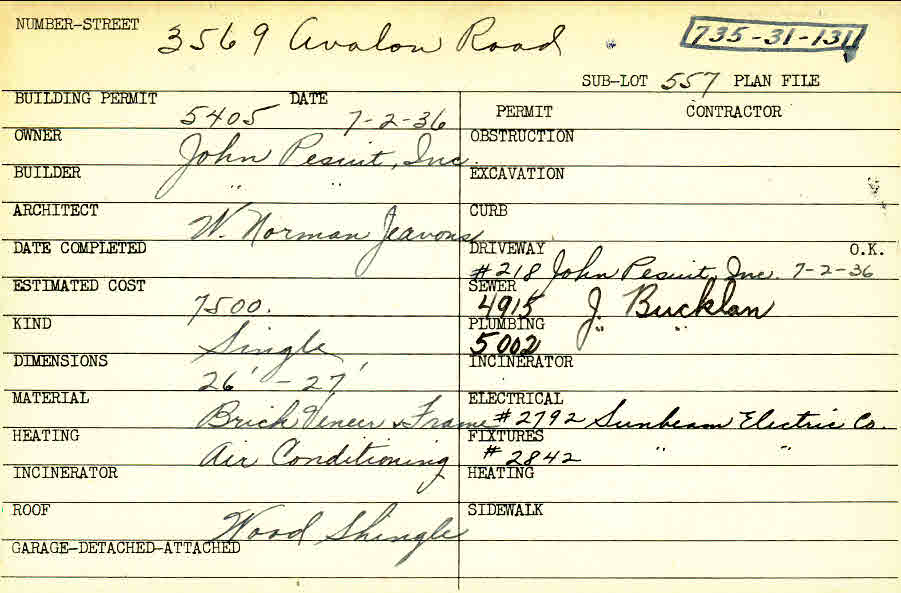 NUMBER-STREET 3569 Avalon Road 735-31-131
SUB-LOT 557 PLAN FILE
BUILDING PERMIT 5405 DATE 7-2-36
OWNER John Pesuit, Inc.
BUILDER " "
ARCHITECT W. Norman Jeavons
DATE COMPLETED
ESTIMATED COST 7500.
KIND Single
DIMENSIONS 26' - 27'
MATERIAL Brick Veneer & Frame
HEATING Air Conditioning
INCINERATOR
ROOF Wood Shingle
GARAGE-DETACHED-ATTACHED
PERMIT CONTRACTOR
OBSTRUCTION
EXCAVATION
CURB
DRIVEWAY O.K.
#218 John Pesuit, Inc. 7-2-36
SEWER
4915 J. Bucklan
PLUMBING " "
5002
INCINERATOR
ELECTRICAL
#2792 Sunbeam Electric Co.
FIXTURES " "
#2842
HEATING
SIDEWALK